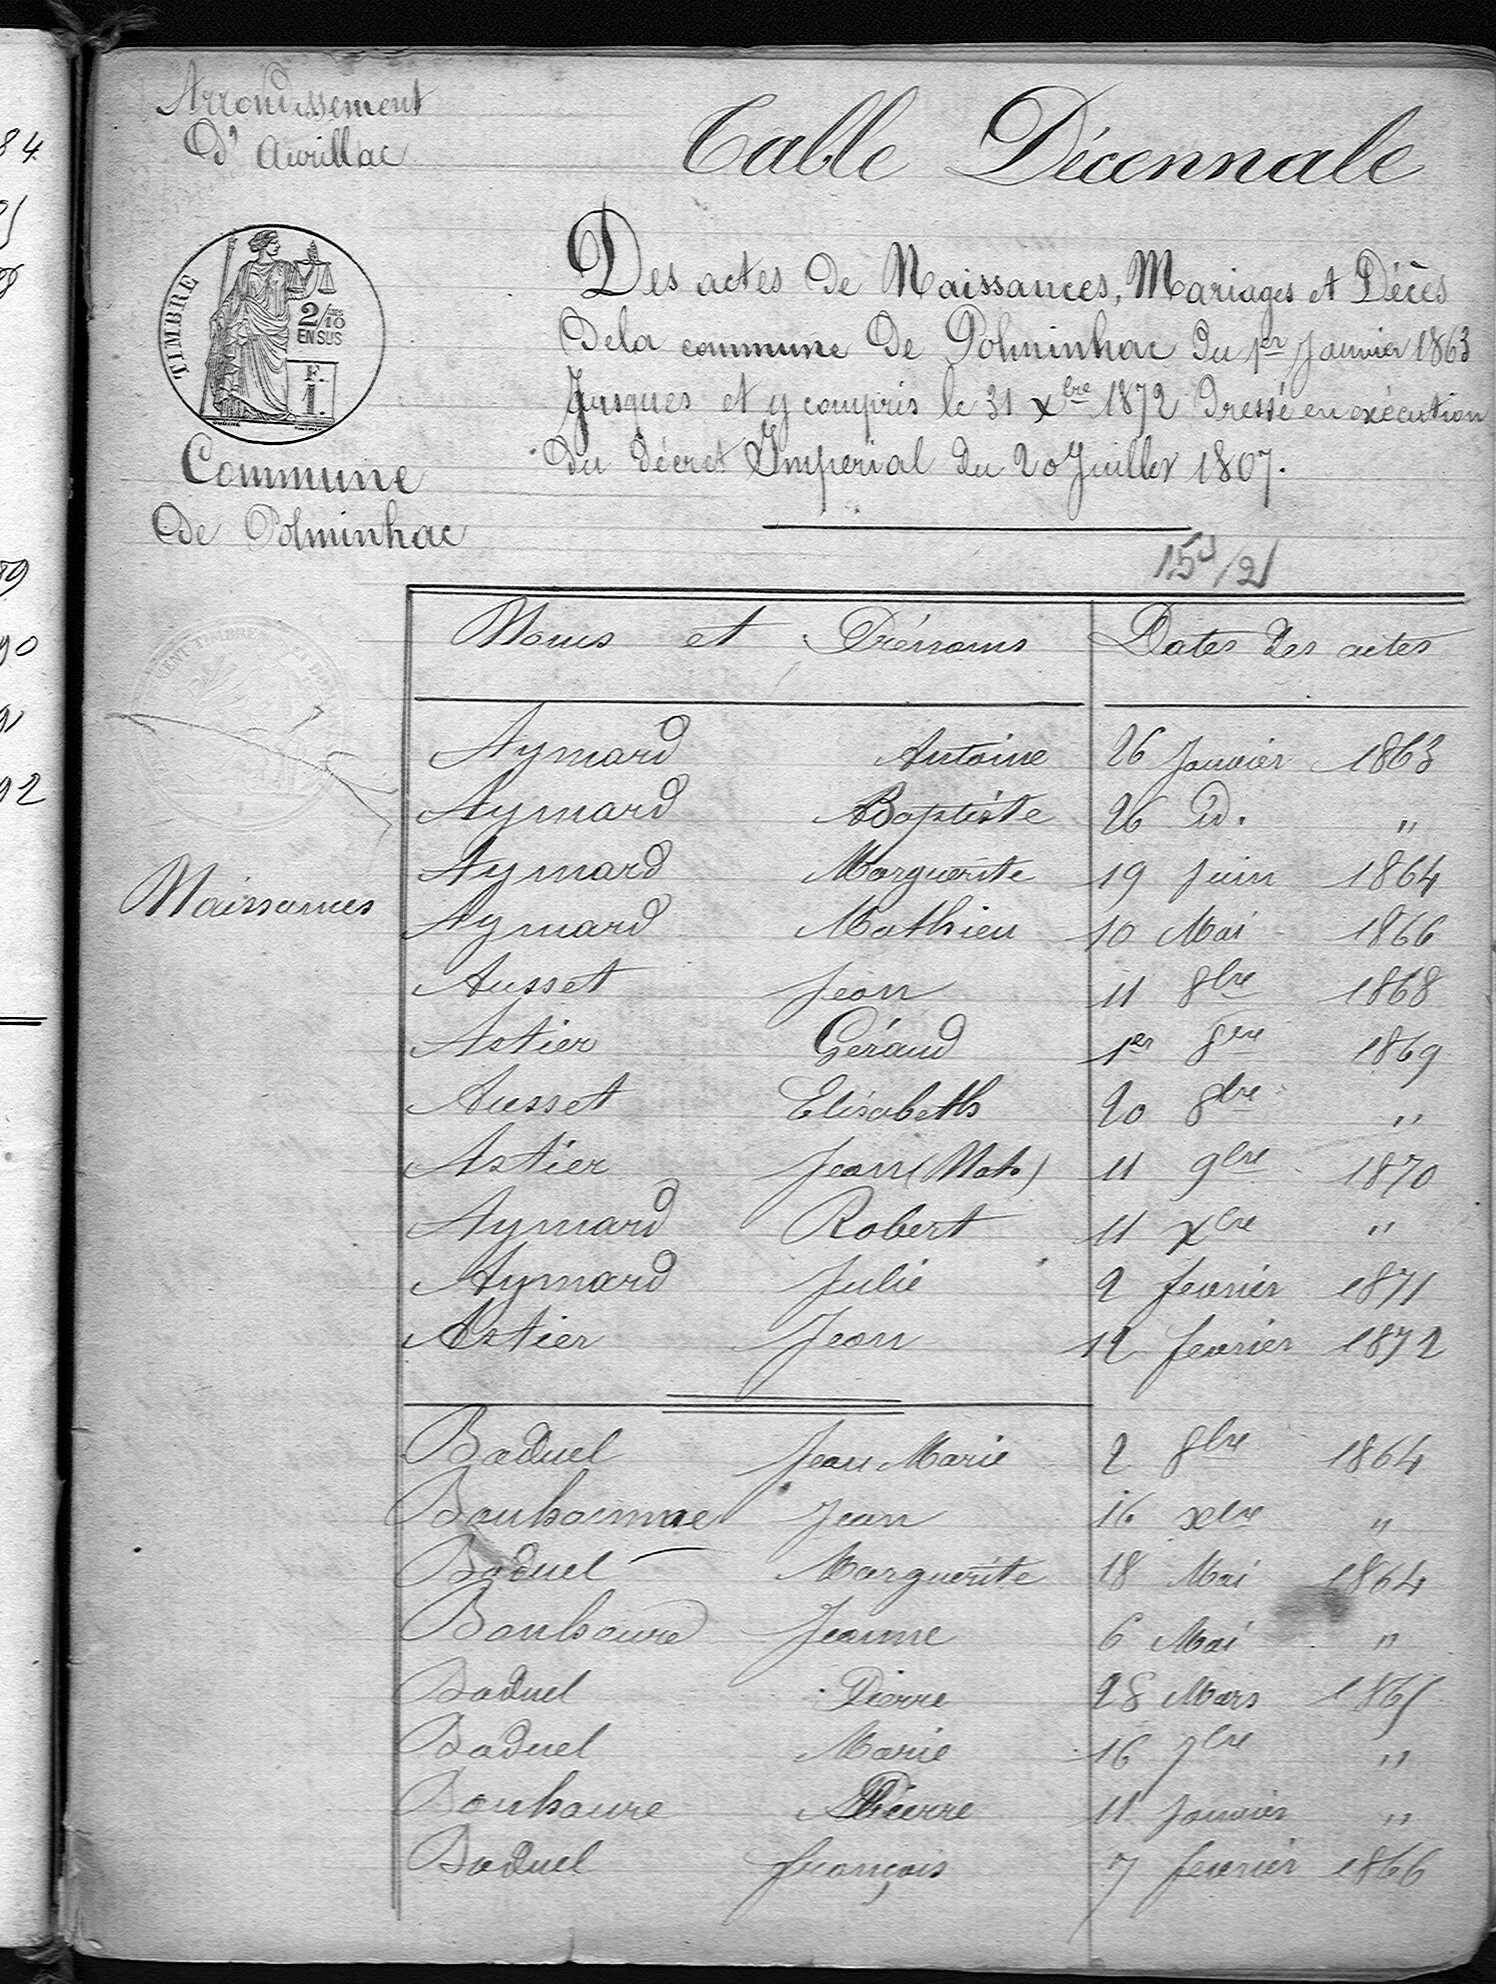 Arrondissement
D'Aurillac
Table Décennale
TIMBRE
2/10 DES
EN SUS
F.
1.
Des actes de Naissances, Mariages et Décès
Dela commune de Polminhac du 1er Janvier 1863
Jusques et y compris le 31 xbre 1872 Dressé en exécution
Du décret Imperial du 20 Juillet 1807.
Commune
de Polminhac
Noms et Prénoms Dates des actes
Naissances
Aymard Antoine 26 Janvier 1863
Aymard Baptiste 26 id. "
Aymard Marguerite 19 Juin 1864
Aymard Mathieu 10 Mai 1866
Ausset Jean 11 8bre 1868
Astier Géraud 1er 8bre 1869
Ausset Elisabeth 20 8bre "
Astier Jean (Nat.) 11 9bre 1870
Aymard Robert 11 xbre "
Aymard Julie 2 fevrier 1871
Astier Jean 12 fevrier 1872
Baduel Jean Marie 2 8bre 1864
Bonhomme Jean 16 xbre "
Baduel Marguerite 18 Mai 1864
Bonhoure Jeanne 6 Mai "
Baduel Pierre 28 Mars 1865
Baduel Marie 16 7bre "
Bonhoure Pierre 11 Janvier "
Baduel françois 7 fevrier 1866
84
90
92